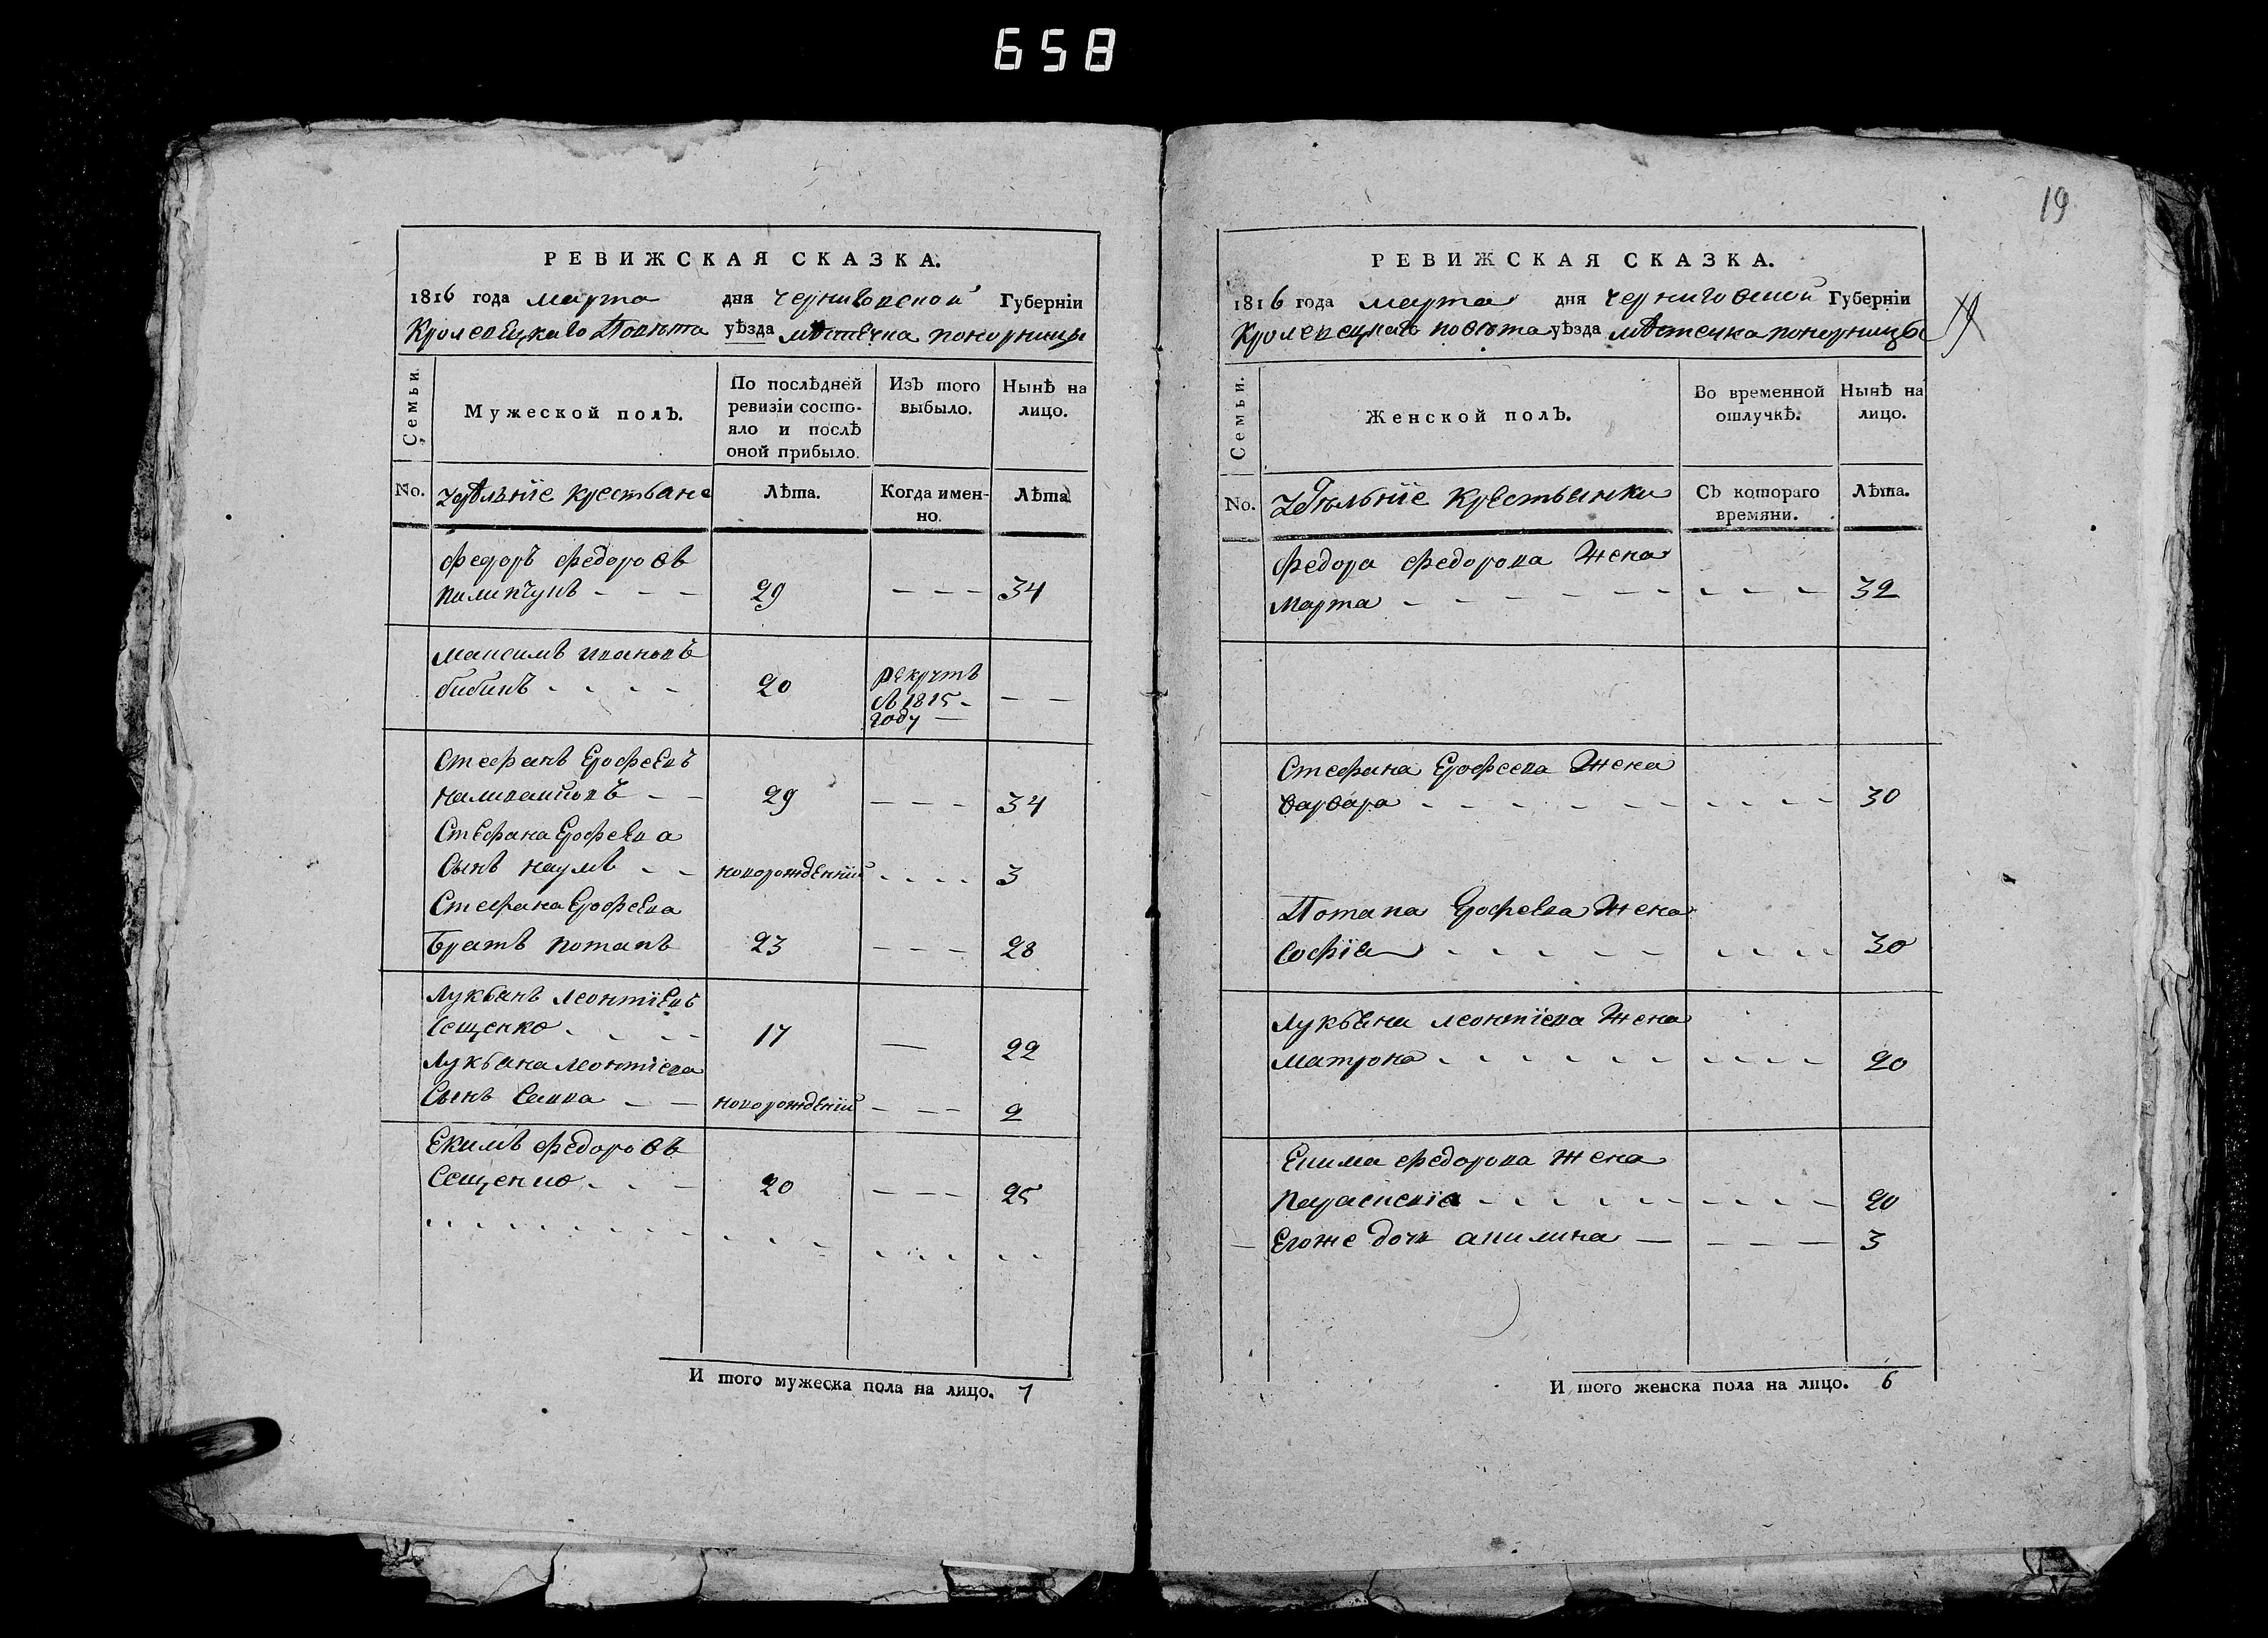 658
РЕВИЖСКАЯ СКАЗКА.
1816 года марта дня черниговской Губернїи
Кролевецкаго Повѣта уѣзда мѣстечка понорницы
Семьи.
Мужеской полъ.
По послѣдней ревизїи состояло и послѣ оной прибыло.
Изъ того выбыло.
Нынѣ на лицо.
No. удѣльнїе крестьяне
Лѣта.
Когда именно.
Лѣта
федоръ федоровъ
пилипчукъ - - - 29 - - - 34
максимъ ивановъ
бибикъ - - - - 20 рекрутъ
въ 1815 - - -
году -
Стефанъ Ерофеевъ
- - 29 - - - 34
Стефана Ерофеева
Сынъ наумъ - - новорожденнїй - - - - 3
Стефана Ерофеева
братъ потапъ 23 - - - 28
Лукьянъ леонтїевъ
Сещенко - - - 17 - 22
Лукьяна леонтїева
Сынъ Савва - - новорожденїй - - - 2
Екимъ федоровъ
Сещенко - - - 20 - - - 25
И того мужеска пола на лицо. 7
19
РЕВИЖСКАЯ СКАЗКА.
1816 года марта дня черниговской Губернїи
Кролевецкаго повѣта уѣзда мѣстечка понорницы
Семьи.
Женской полъ.
Во временной отлучкѣ.
Нынѣ на лицо.
No. Удѣльнїе крестьянки
Съ котораго времяни.
Лѣта.
федора федорова жена
марта - - - - - - - - - - 32
Стефана Ерофеева жена
варвара - - - - - - - - - - 30
Потапа Ерофеева жена
Софїя - - - - - - - - - 30
Лукьяна леонтїева жена
матрона - - - - - - - - - - 20
Екима федорова жена
параскевїя - - - - - - - - - 20
- Егоже дочь акилина - - - - 3
И того женска пола на лицо. 6